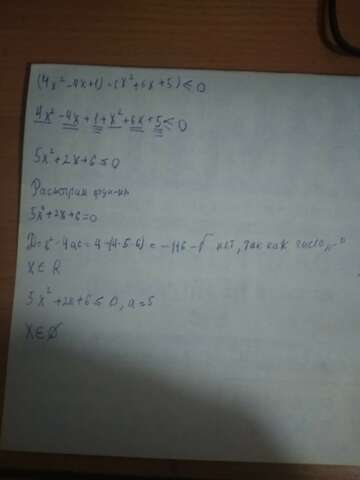 (4x²-4x+1)+(x²+6x+5)≤0
4x²-4x+1+x²+6x+5≤0
5x²+2x+6≤0
Рассмотрим фун-ии
5x²+2x+6=0
D=b²-4ac=4-(4·5·6)=-116-√ нет, так как число „-"
X∈R
5x²+2x+6≤0, a=5
X∈∅